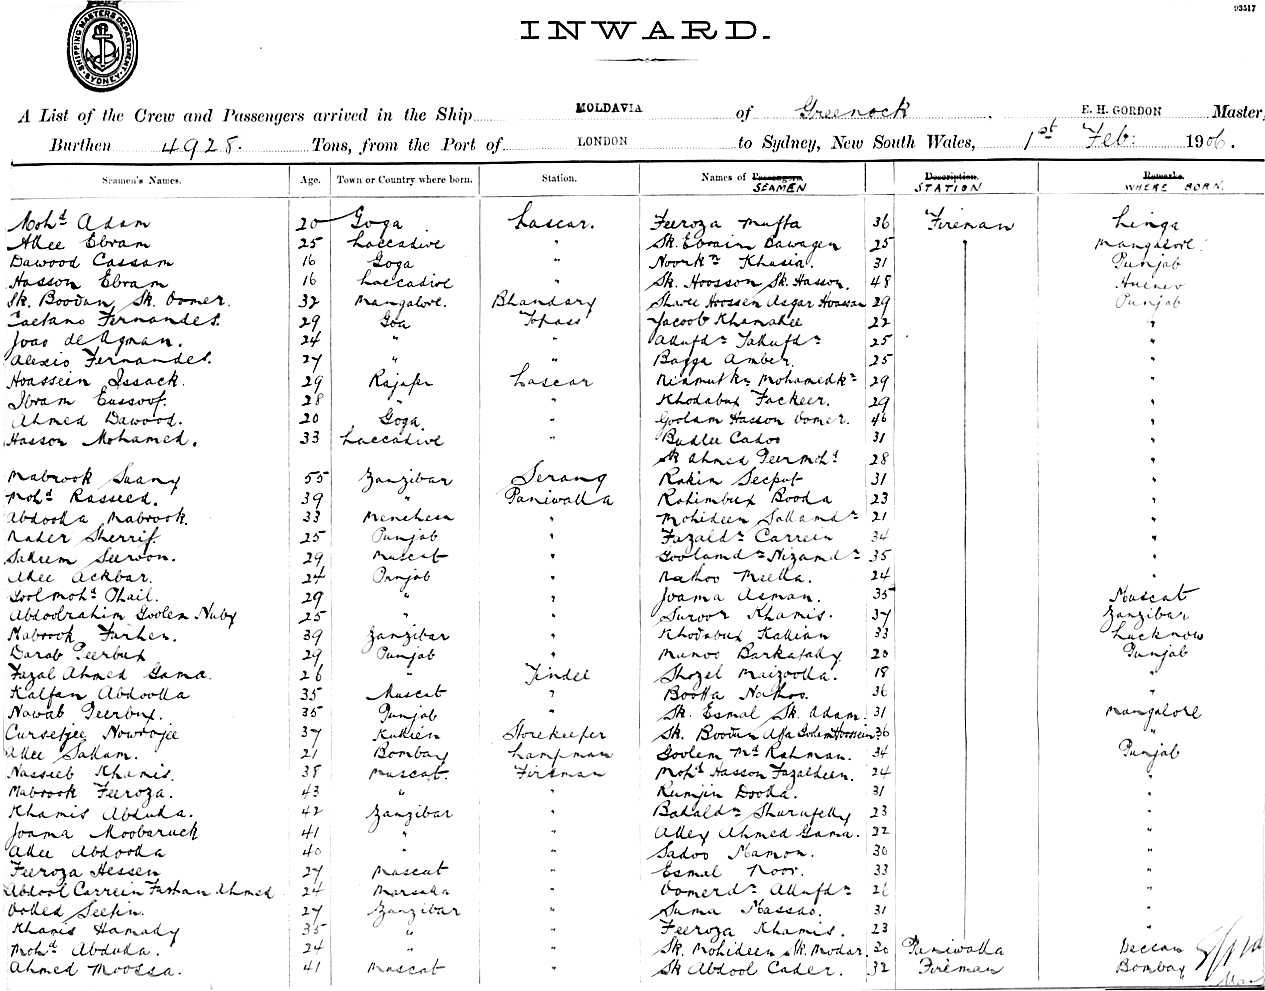 93517
SHIPPING MASTERS DEPARTMENT SYDNEY
INWARD.
A List of the Crew and Passengers arrived in the Ship MOLDAVIA of Greenock. E. H. GORDON Master,
Burthen 4928. Tons, from the Port of LONDON to Sydney, New South Wales, 1st Feb: 1906.
Seamen's Names. Age. Town or Country where born. Station. Names of Passengers SEAMEN Description. STATION Remarks WHERE BORN.
Mohd Adam 20 Goga Lascar. Feeroza Mufta 36 Fireman Linga
Allee Ebram 25 Laccadive " Sk. Ebraim Bawagen 25 Mangalore.
Dawood Cassam 16 Goga " Noorkn Khasia. 31 Punjab
Hasson Ebram 16 Laccadive " Sk. Hoosson Sk. Hasson. 48
Sk. Boodan Sk. Oomer. 32 Mangalore. Bhandary Hoossen Asgar Hoossan 29 Punjab
Caetano Fernandes. 29 Goa Topass Jacoob Khamahee 22 "
Joao de 24 " " 25 "
Alexio Fernandes. 27 " " Bagga Amber. 25 "
Hoassein Issack. 29 Lascar Mohamedkn 29 "
Ibram Eussoof. 28 " " Khodabux Fackeer. 29 "
Ahmed Dawood. 20 Goga. " Goolam Hasson Oomer. 46 "
Hasson Mohamed. 33 Laccadive " Budlee Cadoo 31 "
Sk Ahmed Peermohd 28 "
Mabrook Suany 55 Zanzibar Serang Rokin Seeput 31 "
Mohd Rasseed. 39 " Paniwalla Rohimbux Booda 23 "
Abdoolla Mabrook. 33 " Mohideen 21 "
Nader Sherrif. 25 Punjab " Fazaldn Carreen 34 "
Sallem Suroon. 29 Muscat " Goolamdn Nizamdn 35 "
Allee Ackbar. 24 Punjab " Nathoo Meella. 24 "
Goolmohd Ohail. 29 " " Joama Asman. 35 Muscat
Abdoolrahim Goolem Naby 25 " " Suroor Khamis. 37 Zanzibar
Mabrook Farhen. 39 Zanzibar " Khodabux Kallian 33 Lucknow
Darab Peerbux 29 Punjab " Munoo Barkatally 20 Punjab
Fazal Ahmed Gama. 26 " Tindel Shozel Maizoolla. 18 "
Kalfan Abdoolla 35 Muscat " Bootta Nathoo. 36 "
Nawab Peerbux. 35 Punjab " Sk. Esmal Sk. Adam. 31 Mangalore
Cursetjee Nowrojee 37 Storekeeper Sk. Boodan Afa Goolem Hoossein 36 "
Allee Sallam. 21 Bombay Lampman Goolem Md Rahman. 34 Punjab
Nasseeb Khamis. 38 Muscat. Fireman Mohd Hasson Fazaldeen. 24 "
Mabrook Feeroza. 43 " " Rumjin Doola. 31 "
Khamis Abdulla. 42 Zanzibar " Bahaldn Shurufelly 23 "
Joama Moobaruck 41 " " Alley Ahmed Gama. 32 "
Allee Abdoolla 40 " " Sadoo Mamon. 30 "
Feeroza Hessen 27 Muscat " Esmal Noor. 33 "
Abdool Carreen Farhan Ahmed 24 " Oomerdn 26 "
Oolled Seefin. 27 Zanzibar " Suma Massao. 31 "
Khamis Hamady 35 " " Feeroza Khamis. 23 "
Mohd Abdulla. 24 " " Sk. Mohideen Sk. Modar. 20 Paniwalla Deccan
Ahmed Moossa. 41 Muscat " Sk Abdool Cader. 32 Fireman Bombay